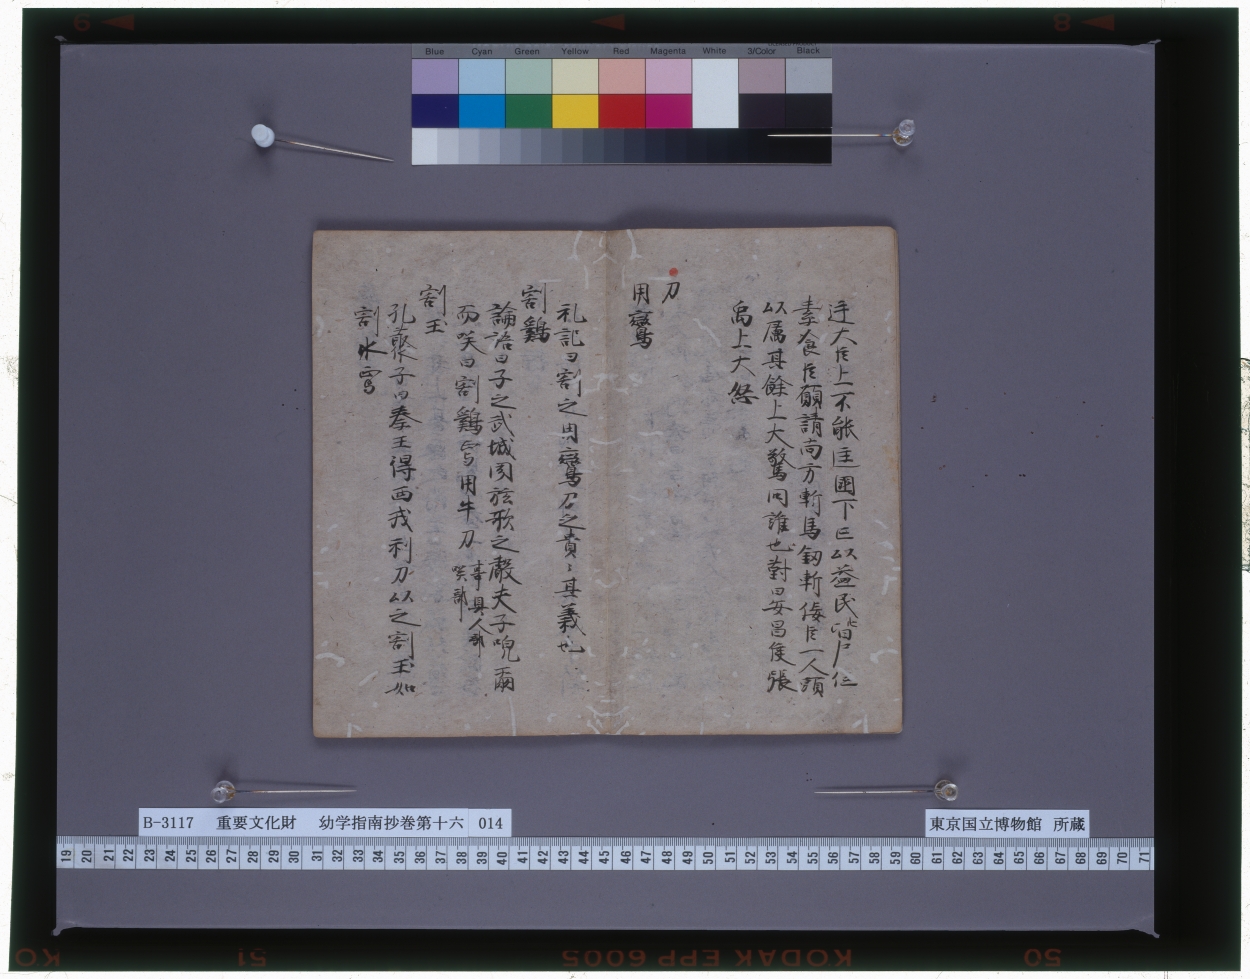 Blue Cyan Green Yellow Red Magenta White 3/Color Black
廷大臣上不能匡國下亡以益民皆尸位
素食臣願請尚方斬馬釼斬侫臣一人頭
以厲其餘上大驚問誰也對曰安昌侯張
禹上大怒
刀
用鸞
礼記曰割之用鸞刀之貴〻其義也
割鷄
論語曰子之武城聞弦歌之聲夫子
而咲曰割鷄焉用牛刀
割玉
孔叢子曰秦王得西戎利刀以之割玉如
割水
B-3117 重要文化財 幼学指南抄巻第十六 014
東京国立博物館 所蔵
19 20 21 22 23 24 25 26 27 28 29 30 31 32 33 34 35 36 37 38 39 40 41 42 43 44 45 46 47 48 49 50 51 52 53 54 55 56 57 58 59 60 61 62 63 64 65 66 67 68 69 70 71
51 KODAK EPP 6005 50